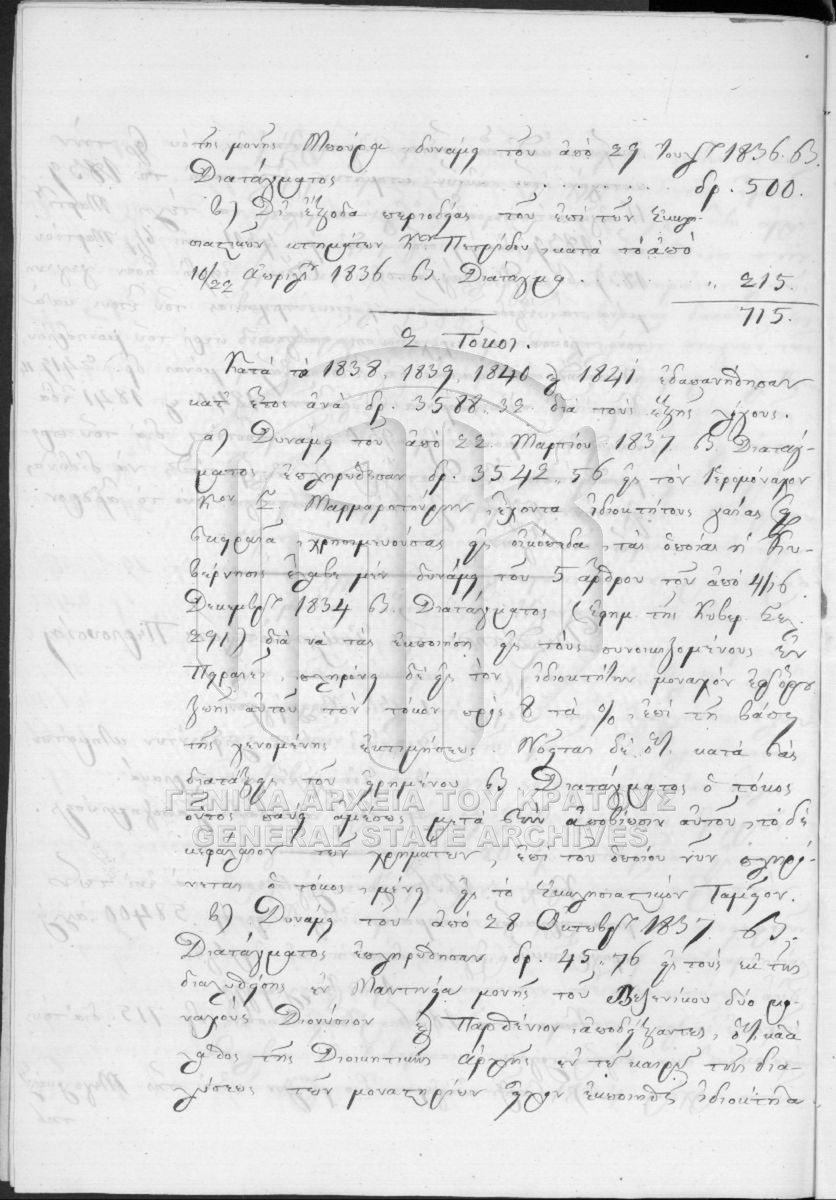 τῆς μονῆς Μπούρα δυνάμει τοῦ ἀπὸ 29 Ἰουλ. 1836. Β.
Διατάγματος . . . . . . . δρ. 500.
β) Δι' ἔξοδα περιοδείας τοῦ ἐπὶ τῶν ἐκκλη-
σιαστικῶν κτημάτων Κου Πετρίδου κατὰ τὸ ἀπὸ
10/22 Ἀπριλ. 1836 Β. Διάταγμα. . " 215.
715.
2. Τόκοι.
Κατὰ τὸ 1838, 1839, 1840 καὶ 1841 ἐδαπανήθησαν
κατ' ἔτος ἀνὰ δρ. 3588.32 διὰ τοὺς ἑξῆς λόγους.
α) Δυνάμει τοῦ ἀπὸ 22 Μαρτίου 1837 Β. Διατάγ-
ματος ἐπληρώθησαν δρ. 3542.56 εἰς τὸν Ἱερομόναχον
Κον Μαρμαροτούρην ἔχοντα ἰδιοκτήτους γαίας
χρησιμευούσας εἰς οἰκόπεδα, τὰς ὁποίας ἡ Κυ-
βέρνησις ἔλαβε μὲν δυνάμει τοῦ 5 ἄρθρου τοῦ ἀπὸ 4/16
Δεκεμβρ. 1834 Β. Διατάγματος (ἐφημ. τῆς Κυβερ. Σελ.
291) διὰ νὰ τὰς ἐκποιήσῃ εἰς τοὺς συνοικιζομένους ἐν
Πειραιεῖ, πληρόνει δὲ εἰς τὸν ἰδιοκτήτην μοναχὸν ἐφ' ὅρου
ζωῆς αὐτοῦ τὸν τόκον πρὸς 8 τὰ %, ἐπὶ τῇ βάσει
τῆς γενομένης ἐκτιμήσεως. Νοεῖται δὲ ὅτι κατὰ τὰς
διατάξεις τοῦ εἰρημένου Β. Διατάγματος ὁ τόκος
οὗτος παύει ἀμέσως μετὰ τὴν ἀποβίωσιν αὐτοῦ, τὸ δὲ
κεφάλαιον τῶν χρημάτων, ἐπὶ τοῦ ὁποίου νῦν πληρό-
νεται ὁ τόκος, μένει εἰς τὸ Ἐκκλησιαστικὸν Ταμεῖον.
β) Δυνάμει τοῦ ἀπὸ 28 Ὀκτωβρ. 1837. Β.
Διατάγματος ἐπληρώθησαν δρ. 45.76 εἰς τοὺς ἐκ τῆς
διαλυθείσης ἐν Μαντινείᾳ μονῆς τοῦ Βεζενίκου δύο μο-
ναχοὺς Διονύσιον καὶ Παρθένιον, ἀποδείξαντες, ὅτι κατὰ
λάθος τῆς Διοικητικῆς ἀρχῆς ἐν τῷ καιρῷ τῆς δια-
λύσεως τῶν μοναστηρίων εἶχον ἐκποιηθῆ ἰδιόκτητα
ΓΕΝΙΚΑ ΑΡΧΕΙΑ ΤΟΥ ΚΡΑΤΟΥΣ
GENERAL STATE ARCHIVES